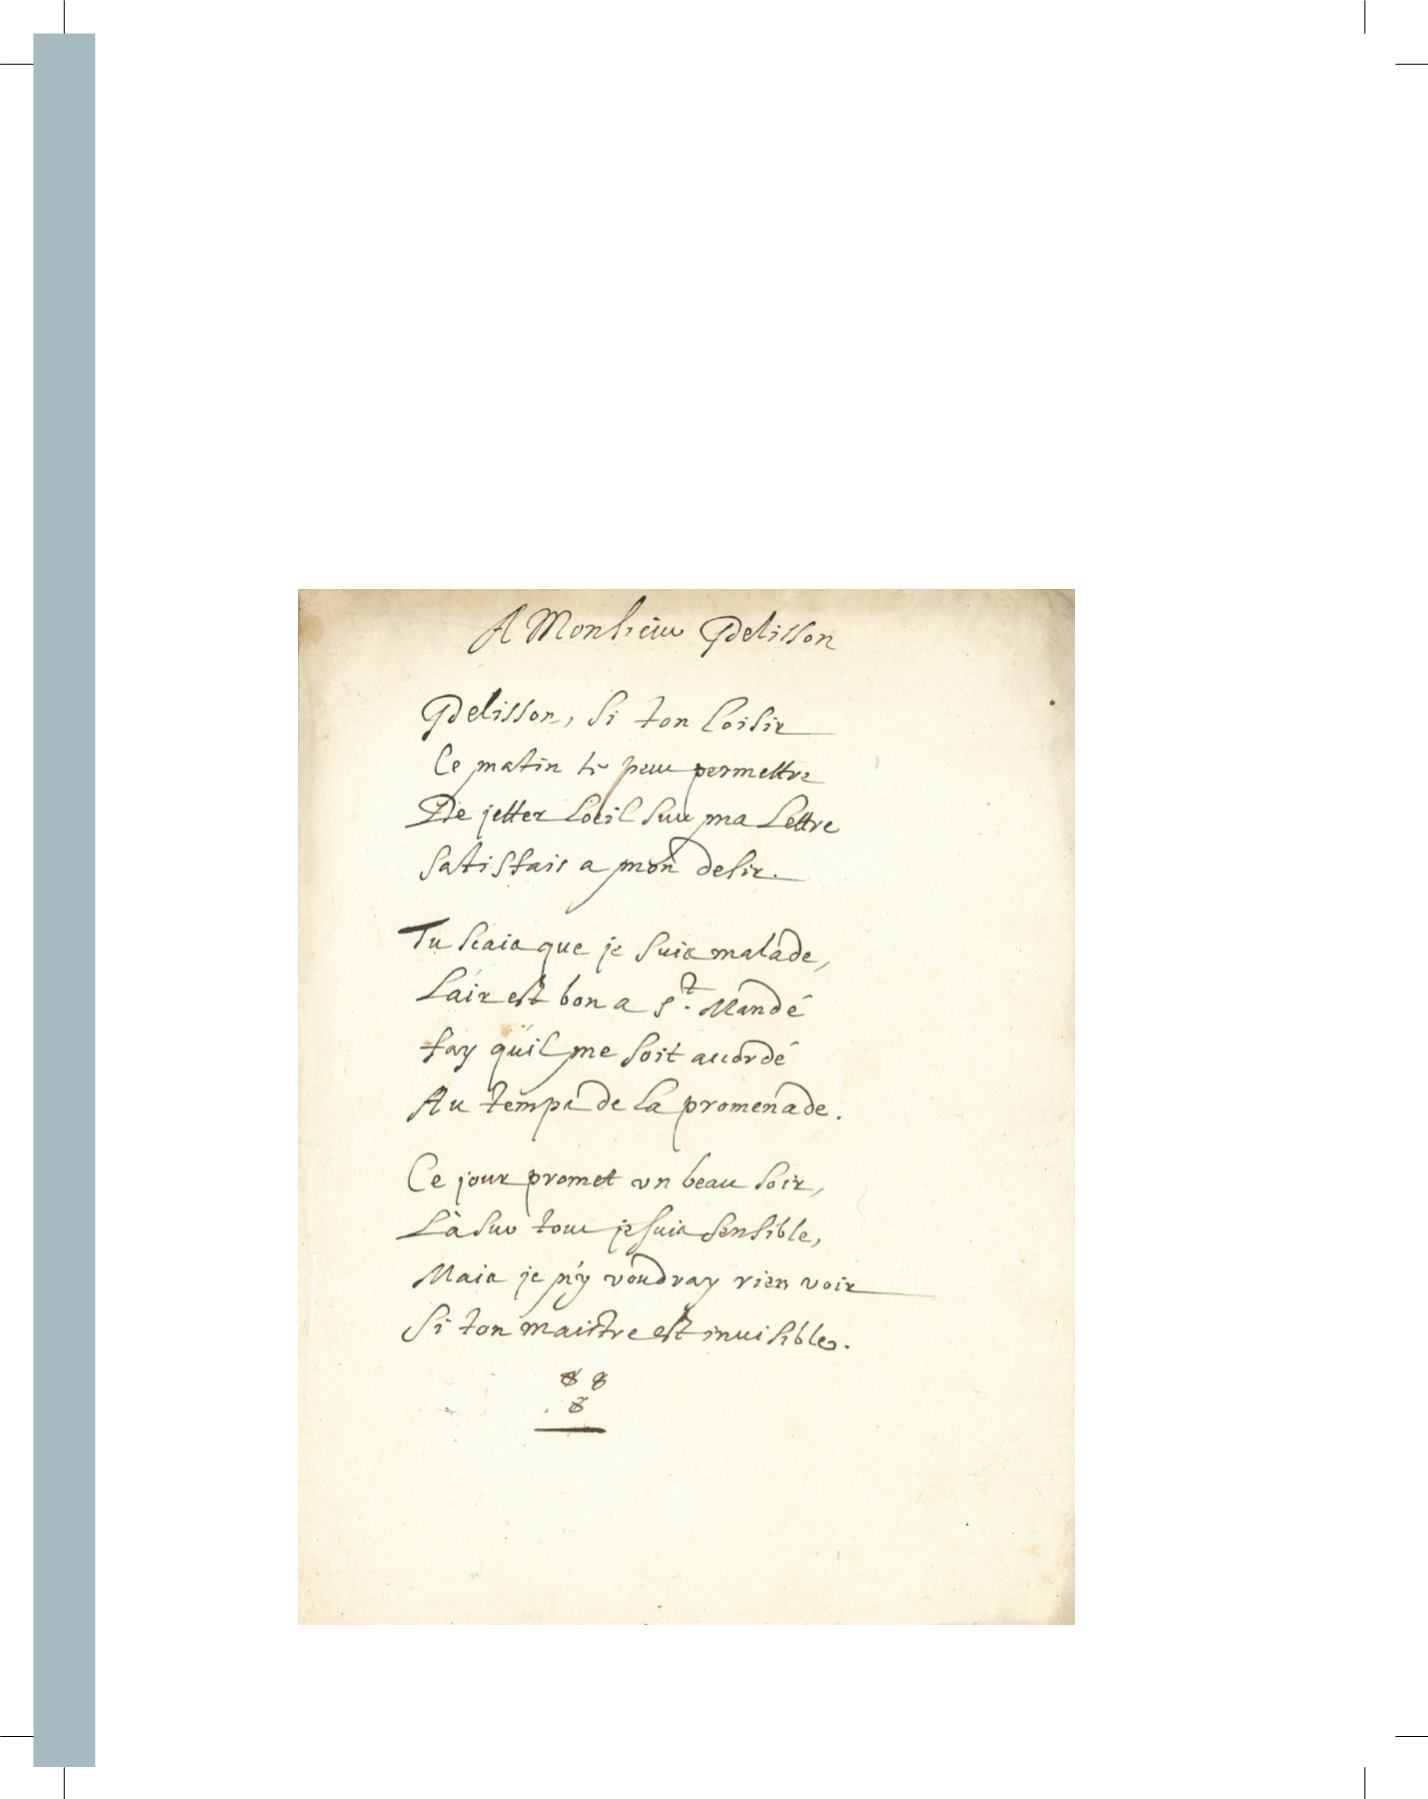 A Monsieur Pelisson
Pelisson, si ton loisir
Ce matin te peut permettre
De jetter l'oeil sur ma lettre
Satisfais a mon desir.
Tu scais que je suis malade,
L'air est bon a St. Mandé
Fay qu'il me soit accordé
Au temps de la promenade.
Ce jour promet vn beau soir,
Là sur tout je suis sensible,
Mais je n'y voudray rien voir
Si ton maistre est inuisible.